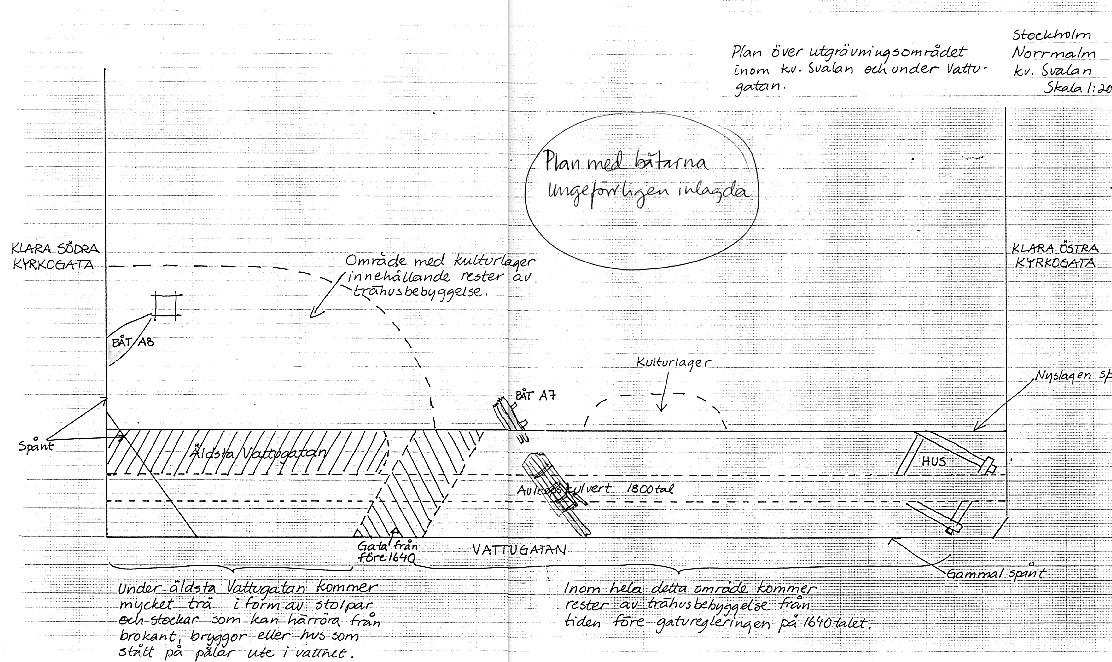 Stockholm
Norrmalm
kv. Svalan
Skala 1:20
Plan över utgrävningsområdet
inom kv. Svalan och under Vattu-
gatan.
Plan med båtarna
ungefärligen inlagda
KLARA SÖDRA
KYRKOGATA
KLARA ÖSTRA
KYRKOGATA
Område med kulturlager
innehållande rester av
trähusbebyggelse.
BÅT A8
Kulturlager
Nyslagen sp
BÅT A7
Spånt
Äldsta Vattugatan
HUS
kulvert 1800 tal
Gata från
före 1640
VATTUGATAN
Gammal spånt
Under äldsta Vattugatan kommer
mycket trä i form av stolpar
och stockar som kan härröra från
brokant, bryggor eller hus som
stått på pålar ute i vattnet.
Inom hela detta område kommer
rester av trähusbebyggelse från
tiden före gaturegleringen på 1640 talet.